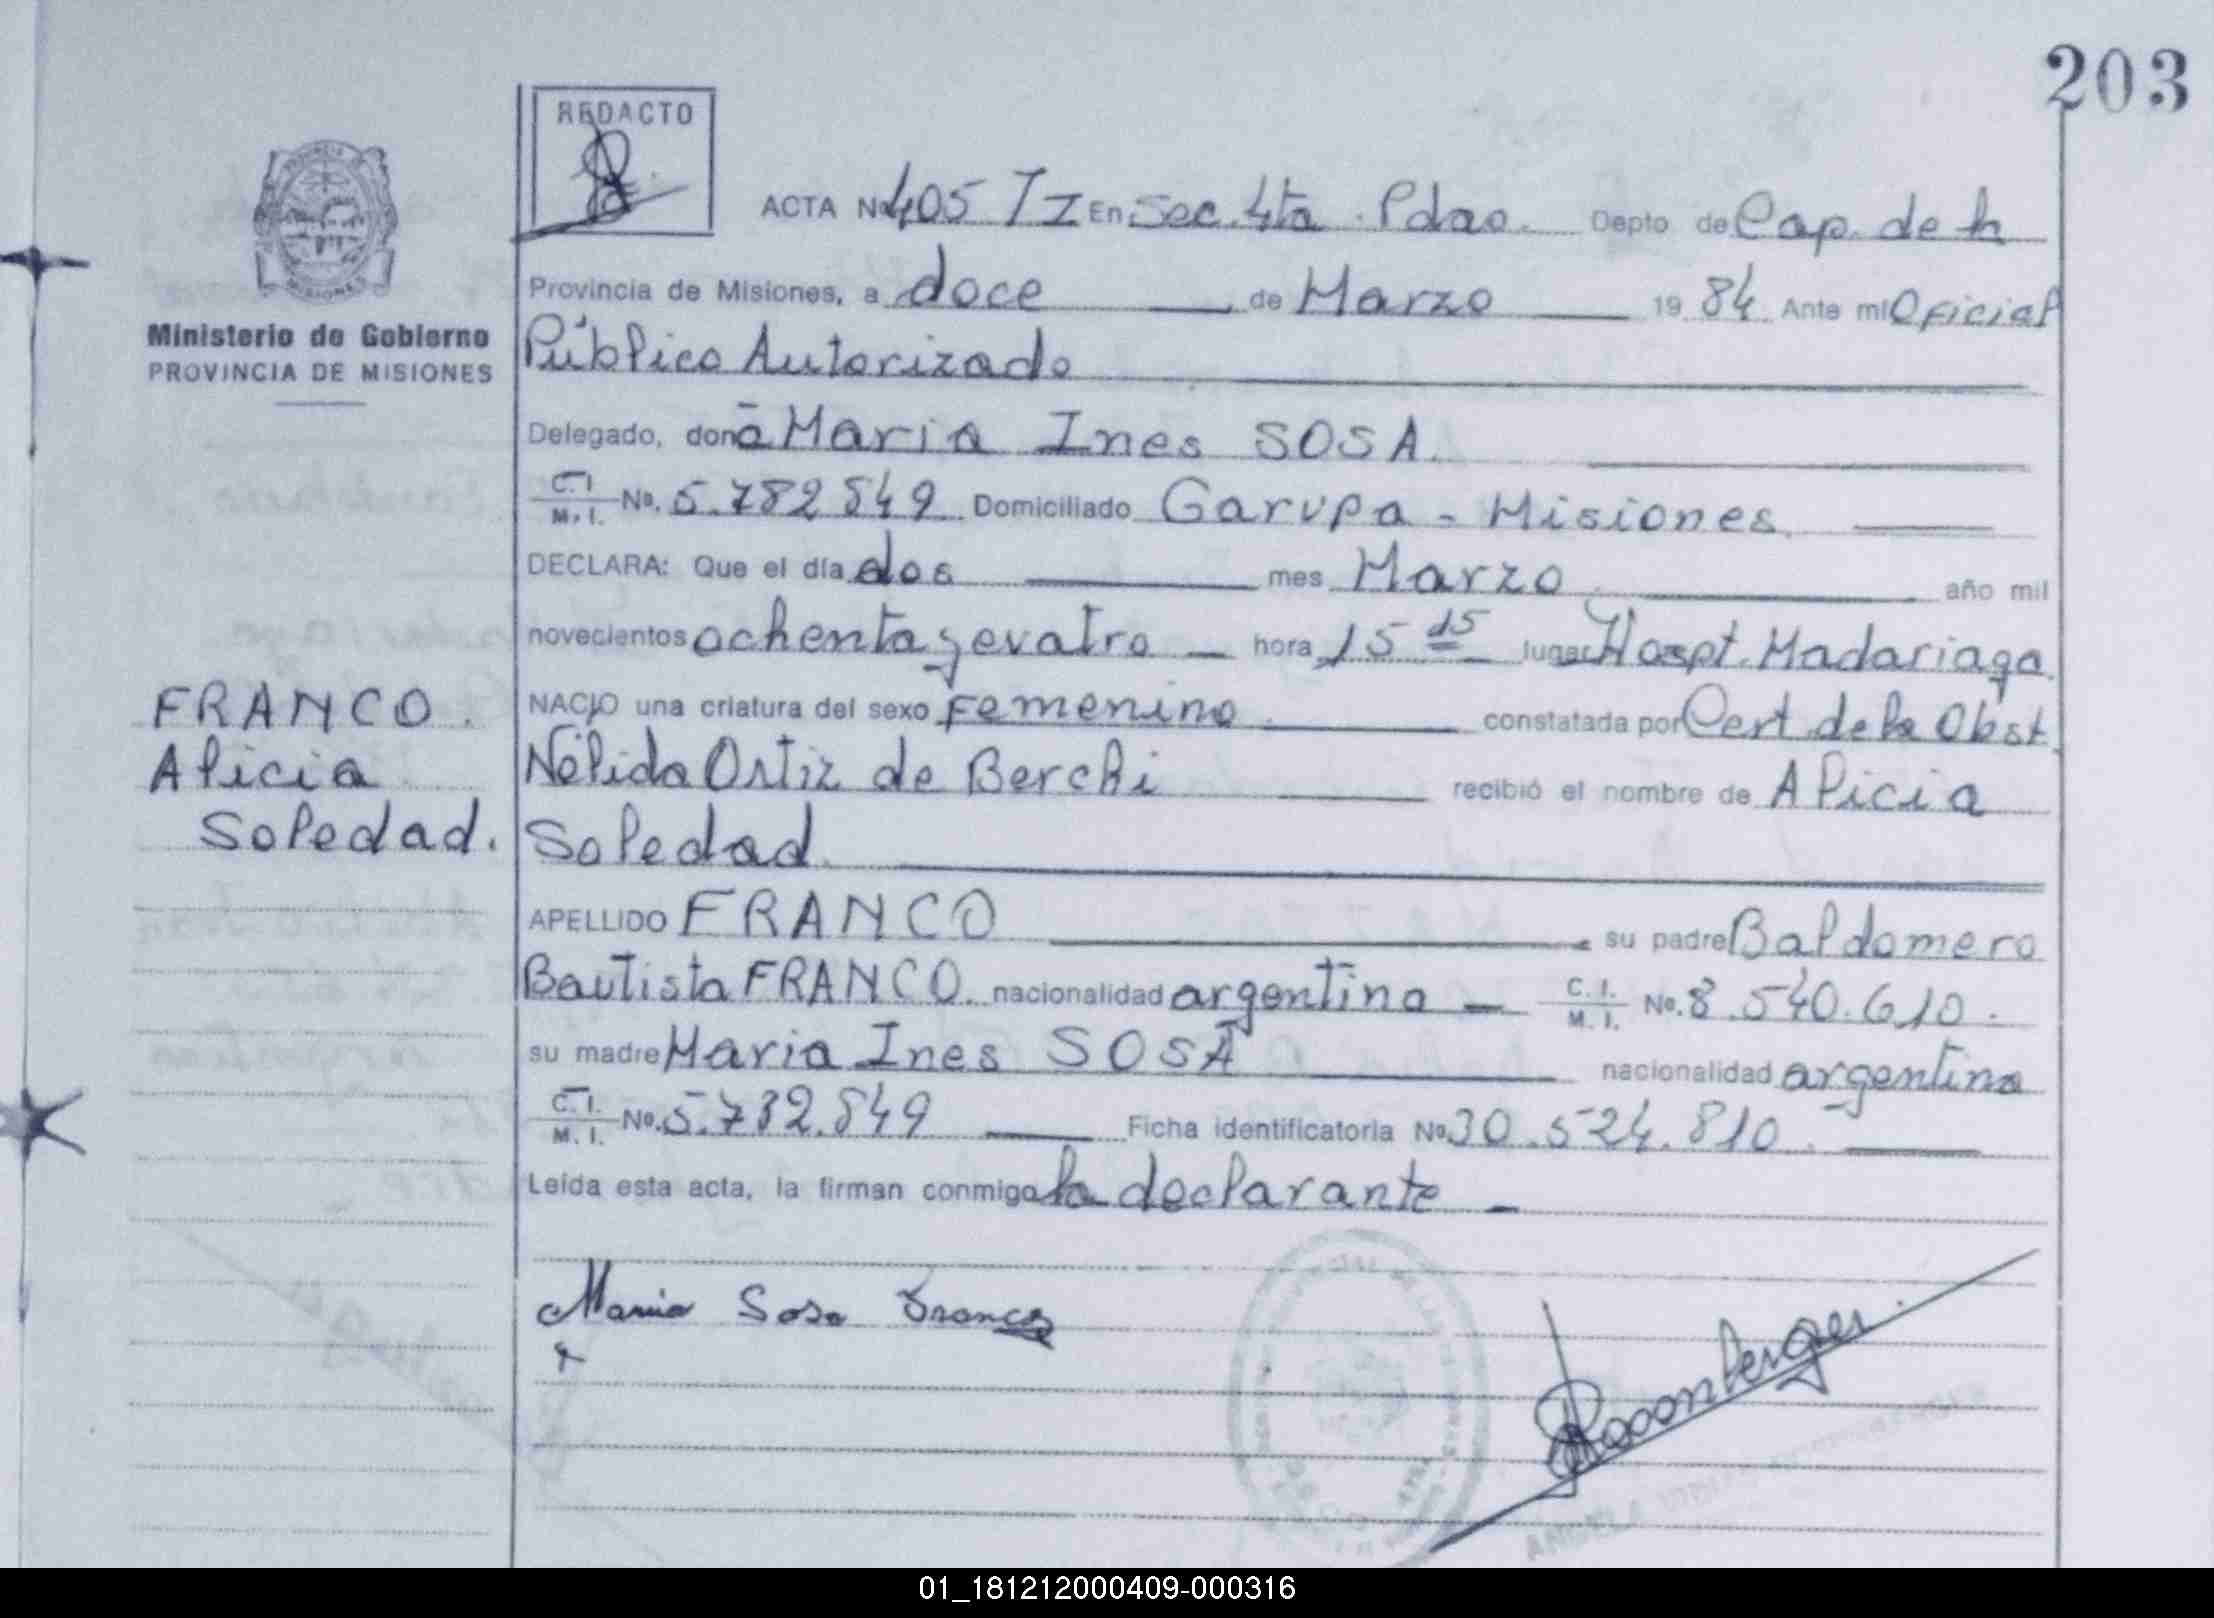 203
REDACTO
ACTA No 405 TI En Sec. 4ta. Pdas. Depto de Cap. de la
Provincia de Misiones, a doce de Marzo 19 84 Ante mi Oficial
Ministerio de Gobierno
PROVINCIA DE MISIONES
Público Autorizado
Delegado, doña Maria Ines SOSA.
C.I. M.I. No. 5.782 849 Domiciliado Garupa - Misiones
DECLARA: Que el día dos mes Marzo año mil
novecientos ochenta y cuatro hora 15 15 lugar Hospt. Madariaga
FRANCO.
Alicia
Soledad.
NACIO una criatura del sexo femenino constatada por Cert. de la Obst.
Nélida Ortiz de Berchi recibió el nombre de Alicia
Soledad
APELLIDO FRANCO su padre Baldomero
Bautista FRANCO. nacionalidad argentina C.I. M.I. No. 8.540.610.
su madre Maria Ines SOSA nacionalidad argentina
C.I. M.I. No. 5.732.849 Ficha identificatoria No 30.524.810.
Leída esta acta, la firman conmigo la declarante
Maria Sosa Franco
01_181212000409-000316